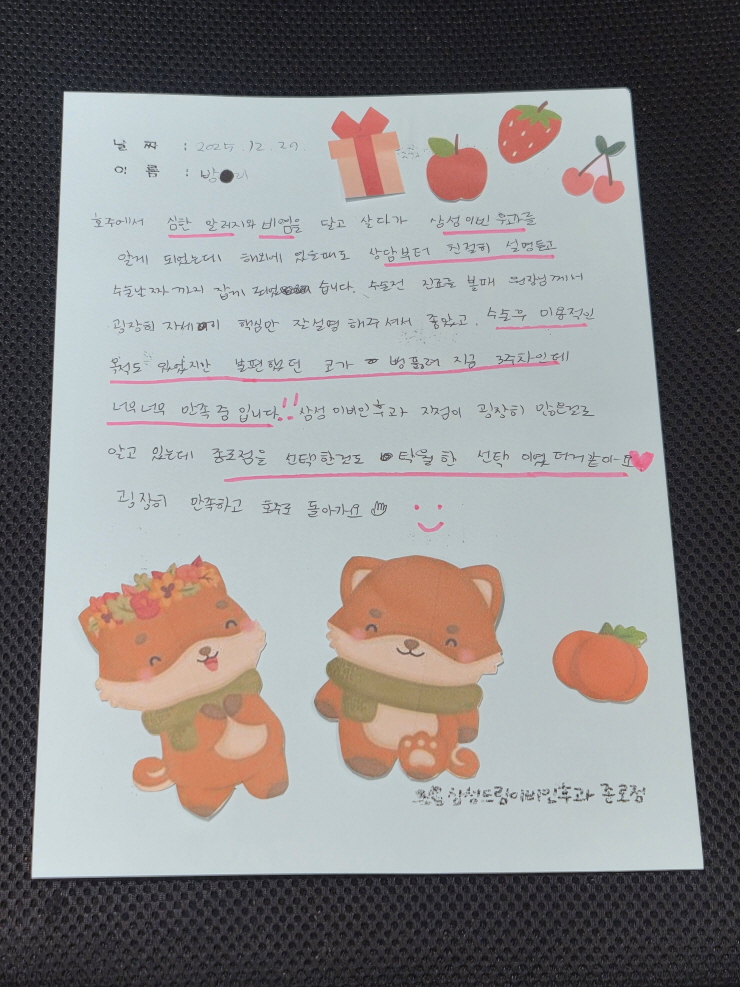 날 짜 : 2025. 12. 29.
이 름 : 방●리
호주에서 심한 알러지와 비염을 달고 살다가 삼성이빈후과를
알게 되었는데 해외에 있을때도 상담부터 친절히 설명듣고
수술날짜까지 잡게 되었습니다. 수술전 진료를 볼때 원장님께서
굉장히 자세하기 핵심만 잘설명 해주셔서 좋았고, 수술후 미용적인
목적도 있지만 불편했던 코가 뻥뚫려 지금 3주차인데
너무너무 만족 중 입니다!! 삼성이비인후과 지점이 굉장히 많은걸로
알고 있는데 종로점을 선택한건도 탁월한 선택 이였던거같아요♥
굉장히 만족하고 호주로 돌아가요
삼성드림이비인후과 종로점